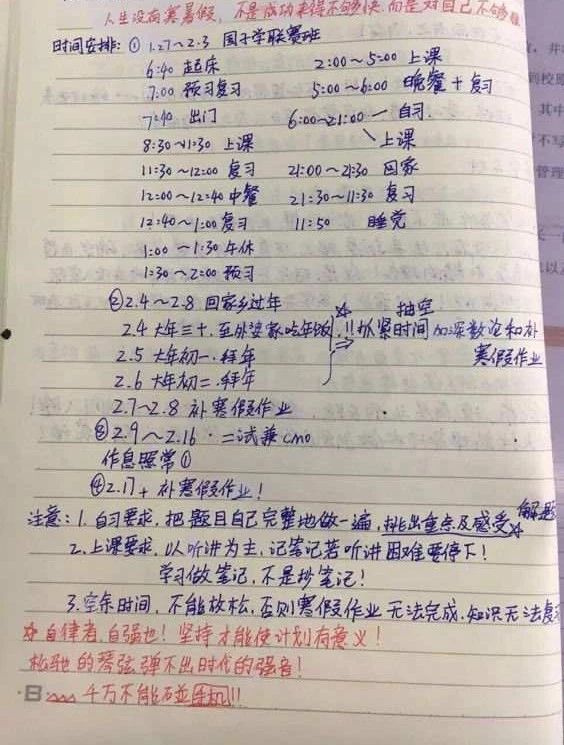 人生没有寒暑假，不是成功来得不够快，而是对自己不够狠
时间安排：① 1.27～2.3 国子学联赛班
6:40 起床 2:00～5:00 上课
7:00 预习复习 5:00～6:00 晚餐＋复习
7:40 出门 6:00～21:00 自习
上课
8:30～11:30 上课
11:30～12:00 复习 21:00～21:30 回家
12:00～12:40 中餐 21:30～11:30 复习
12:40～1:00 复习 11:50 睡觉
1:00～1:30 午休
1:30～2:00 预习
② 2.4～2.8 回家乡过年
2.4 大年三十，至外婆家吃年饭
2.5 大年初一．拜年
2.6 大年初二．拜年
☆ 抽空
!! 抓紧时间加深数论和补
⇒ 寒假作业
2.7～2.8 补寒假作业
③ 2.9～2.16．二试兼CMO
作息照常①
④ 2.17＋ 补寒假作业！
注意：1. 自习要求，把题目自己完整地做一遍，挑出重点及感受☆解题
2. 上课要求，以听讲为主，记笔记若听讲困难要停下！
学习做笔记，不是抄笔记！
3. 空余时间，不能放松，否则寒假作业无法完成，知识无法复
☆自律者，自强也！坚持才能使计划有意义！
松驰的琴弦弹不出时代的强音！
千万不能碰手机!!